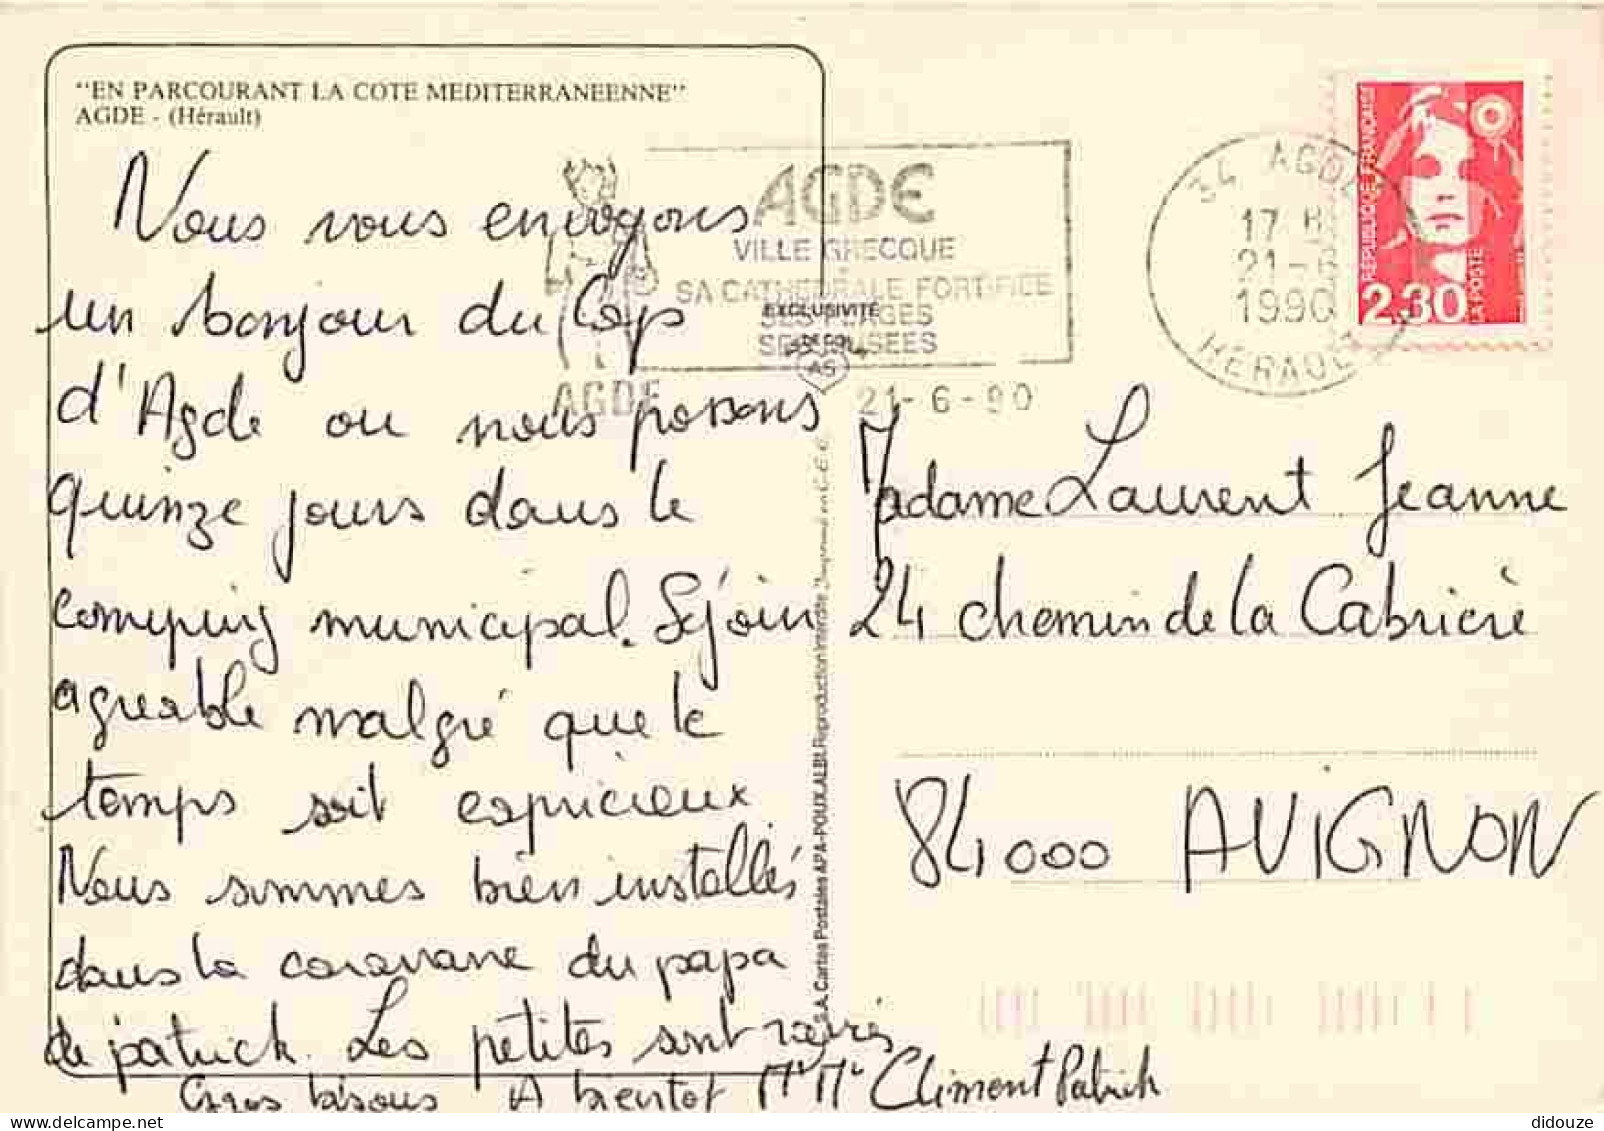 "EN PARCOURANT LA COTE MEDITERRANEENNE"
AGDE - (Hérault)
Nous vous envoyons
un bonjour du Cap
d'Agde ou nous passons
quinze jours dans le
camping municipal. Séjour
agréable malgré que le
temps soit capricieux
Nous sommes bien installés
dans la caravane du papa
de patrick. Les petites sont ravies
Gros bisous A bientot Mr Me Climent Patrick
AGDE
VILLE GRECQUE
SA CATHEDRALE FORTIFIEE
SES PLAGES
SES MUSEES
AGDE
21-6-90
EXCLUSIVITÉ
AS
S.A. Cartes Postales APA-POUX ALBI. Reproduction Interdite Imprimé en C.E.E.
34 AGDE
17 H
21-6
1990
HERAULT
RÉPUBLIQUE FRANÇAISE
2,30
LA POSTE
Madame Laurent Jeanne
24 chemin de la Cabrière
84000 AVIGNON
didouze